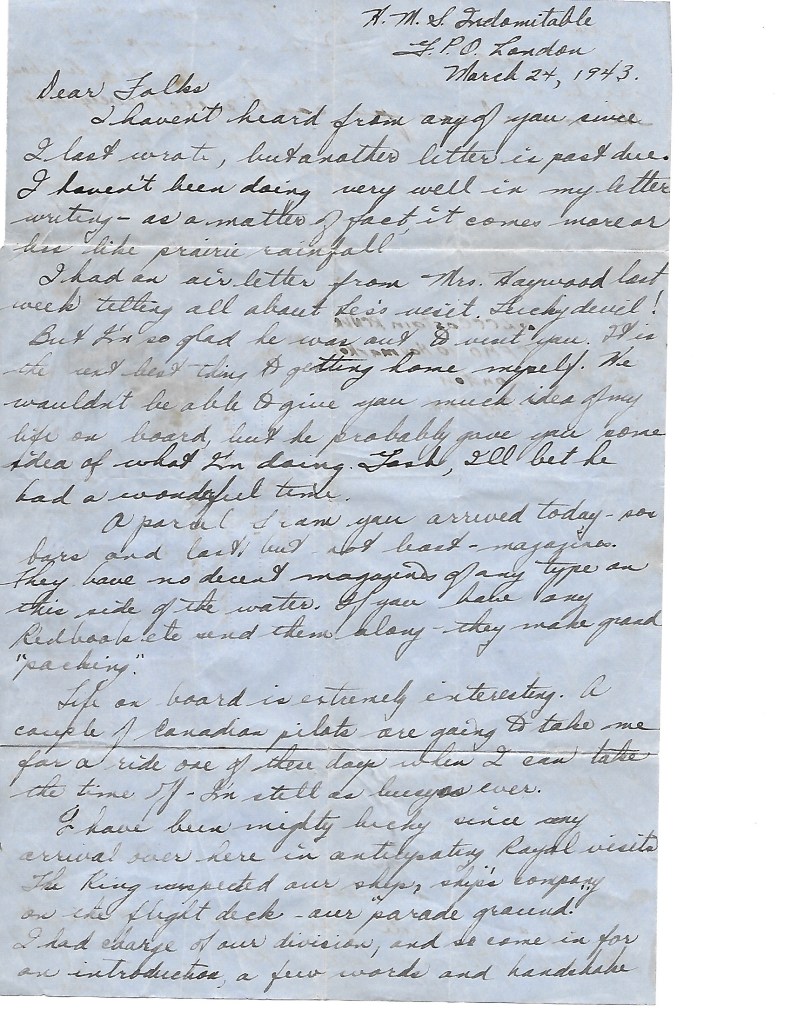 H. M. S. Indomitable
G. P. O. London
March 24, 1943.
Dear Folks
I haven't heard from any of you since
I last wrote, but another letter is past due.
I haven't been doing very well in my letter
writing - as a matter of fact, it comes more or
less like prairie rainfall
I had an air letter from Mrs. Haywood last
week telling all about Les's visit. Lucky devil!
But I'm so glad he was out to visit you. It is
the next best thing to getting home myself. He
wouldn't be able to give you much idea of my
life on board, but he probably gave you some
idea of what I'm doing. Gosh, I'll bet he
had a wonderful time.
A parcel from you arrived today -
bars and last, but not least - magazines.
They have no decent magazines of any type on
this side of the water. If you have any
Redbooks etc send them along - they make grand
"packing."
Life on board is extremely interesting. A
couple of Canadian pilots are going to take me
for a ride one of these days when I can take
the time off - I'm still as busy as ever.
I have been mighty lucky since my
arrival over here in anticipating Royal visits
The King inspected our ship, ship's company
on the flight deck - our "parade ground."
I had charge of our division, and so came in for
an introduction, a few words and handshake